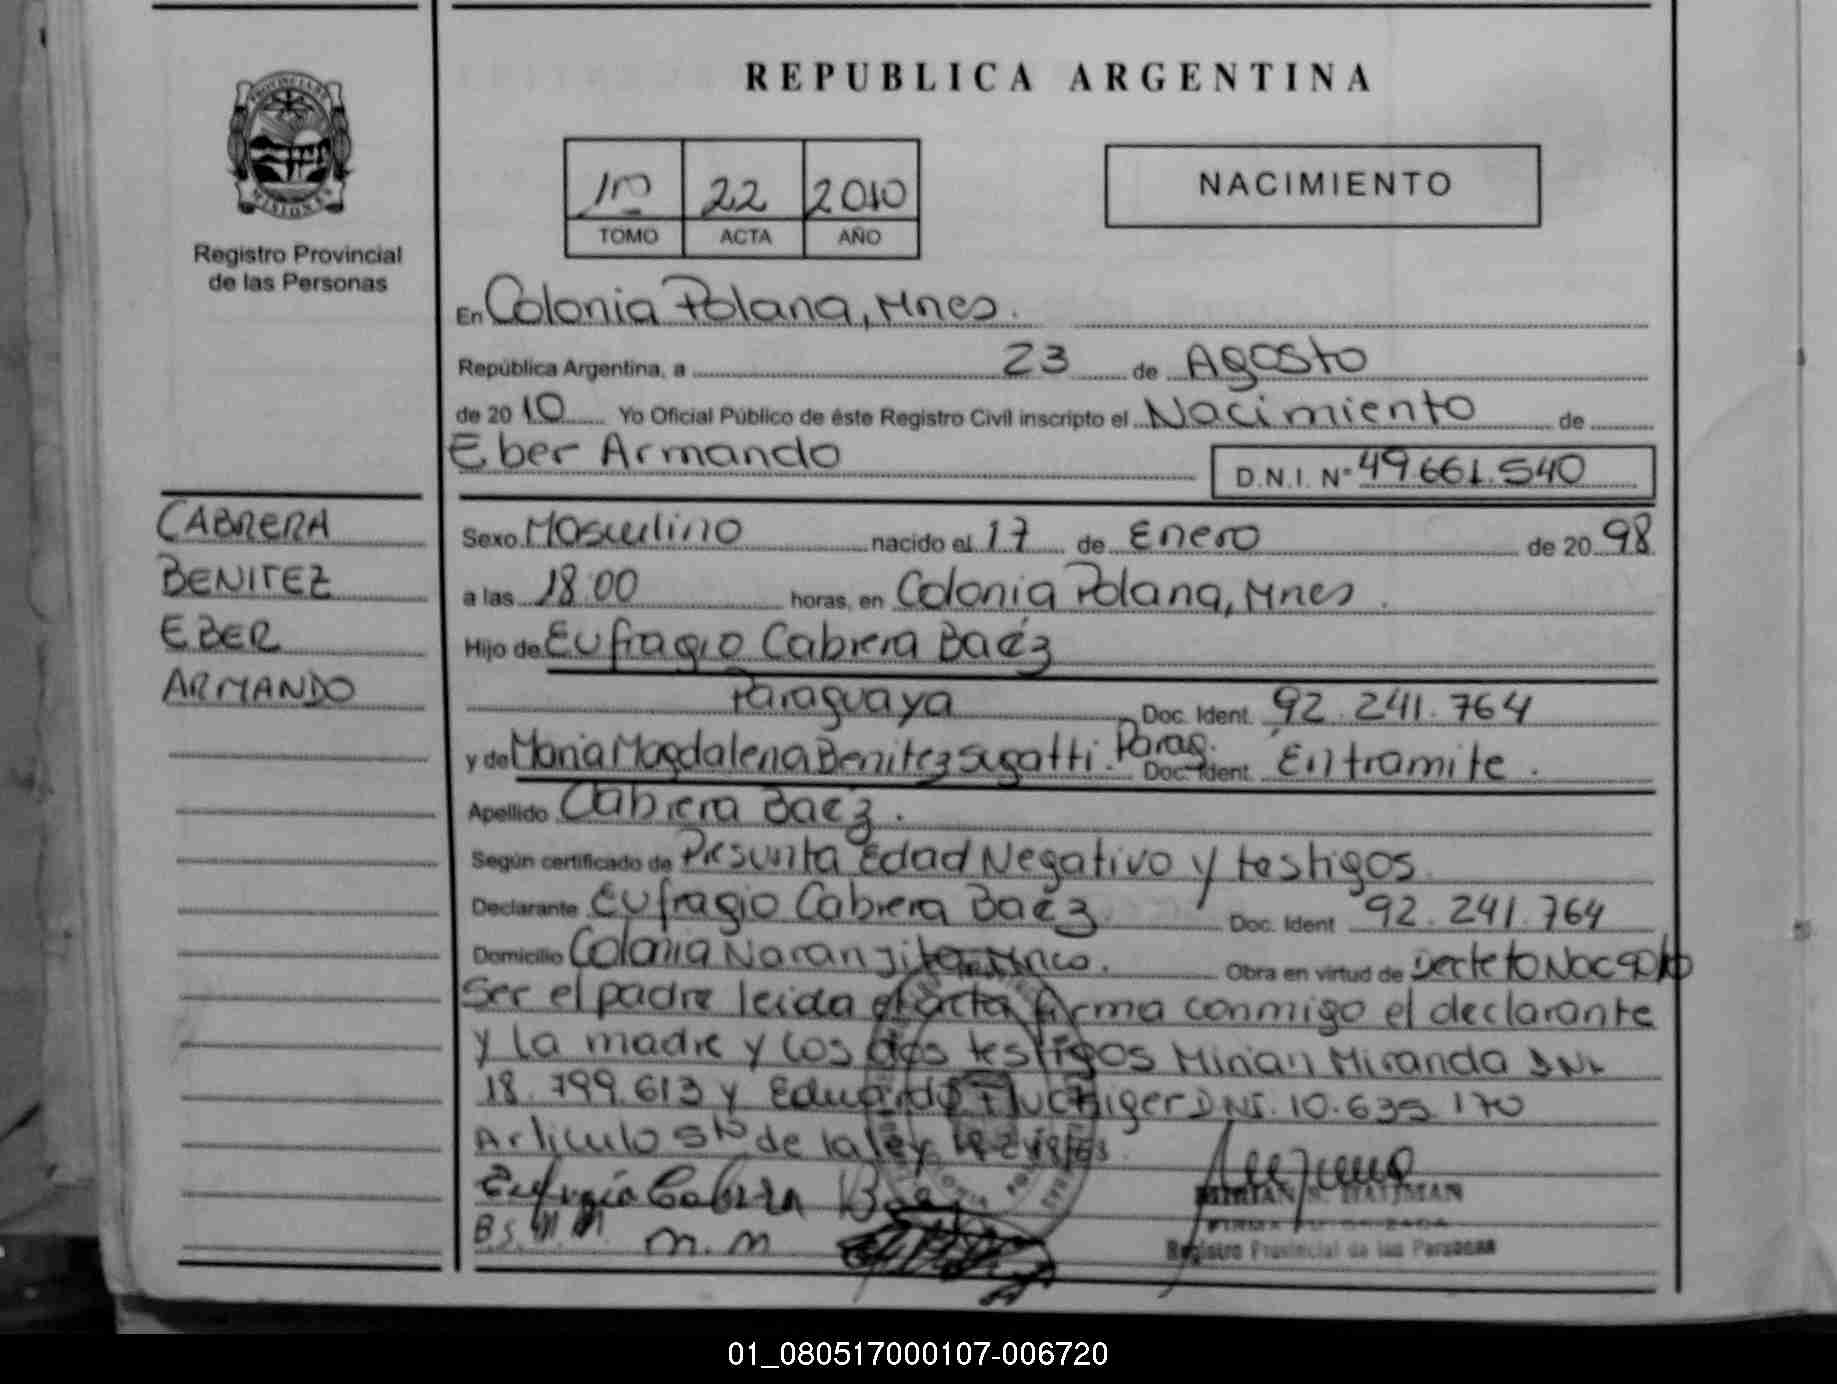 REPUBLICA ARGENTINA
1º 22 2010
TOMO ACTA AÑO
NACIMIENTO
Registro Provincial
de las Personas
En Colonia Polana, Mnes.
República Argentina, a 23 de Agosto
de 2010 Yo Oficial Público de éste Registro Civil inscripto el Nacimiento de
Eber Armando D.N.I. Nº 49.661.540
CABRERA
BENITEZ
EBER
ARMANDO
Sexo Masculino nacido el 17 de Enero de 20 98
a las 18:00 horas, en Colonia Polana, Mnes.
Hijo de Eufragio Cabrera Baéz
Paraguaya Doc. Ident. 92.241.764
y de Maria Magdalena Benitez Sugatti. Parag. Doc. Ident. En tramite.
Apellido Cabrera Baéz.
Según certificado de Presunta Edad Negativo y testigos.
Declarante Eufragio Cabrera Baéz Doc. Ident 92.241.764
Domicilio Colonia Naranjito Obra en virtud de
Ser el padre leida el acta firma conmigo el declarante
y la madre y los dos testigos Mirian Miranda DNI
18.799.613 y Eduardo Fluckiger DNI. 10.635.170
Articulo 5to de la ley
Eufragio Cabrera Bae
B.S.M.M. m.m
MIRIAN S. HATJMAN
FIRMA AUTORIZADA
Registro Provincial de las Personas
01_080517000107-006720